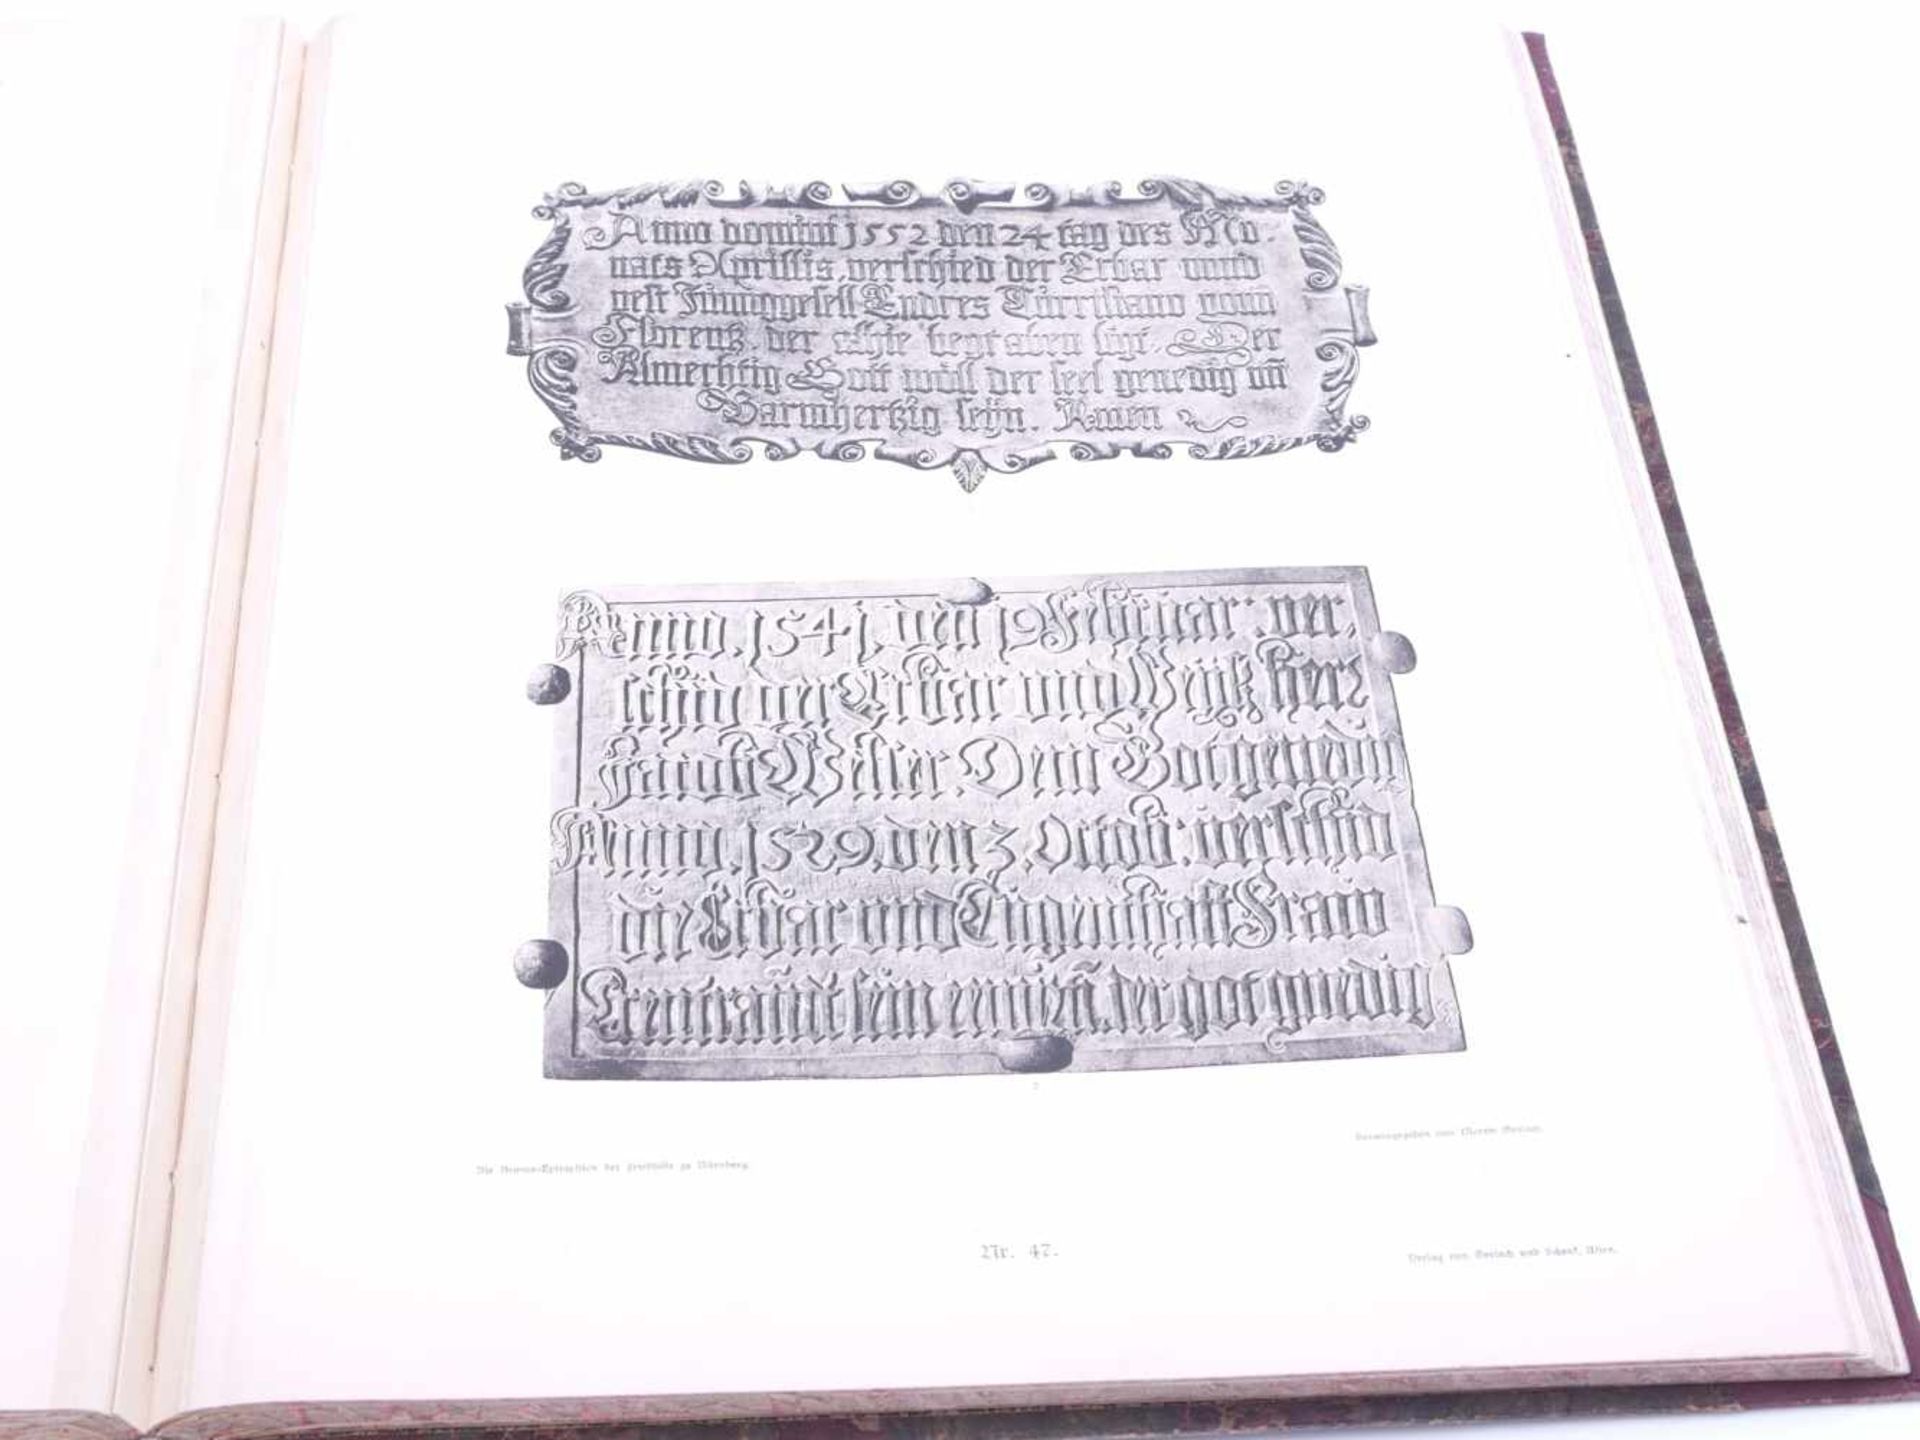 Anno domini 1552 den 24 tag des Mo-
nats Aprillis verschied der Erbar vnnd
vest Jünnggesell Endres Türrisano vom
Florentz, der alhie begraben ligt. Der
Almechtig Gott wöll der seel genedig vñ
Barmhertzig seÿn. Amen
Anno. 1541. den 19 Februar: ver.
schid der Erbar und Weÿß Herz
Jacob Welser. Dem Got genedig
Anno. 1529. den 3. Octob: verschid
die Erbar und Tugenthafft Fraw
Erenfraw sein der got gnedig
2
Die Bronze-Epitaphien der Friedhöfe zu Nürnberg.
Herausgegeben von Martin Gerlach.
Nr. 47.
Verlag von Gerlach und Schenk, Wien.